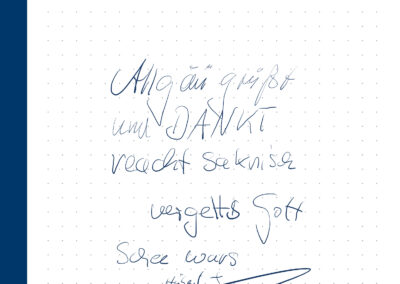 Allgäu grüßt
und DANKT
reacht sakrisch
vergelts Gott
Schee wars